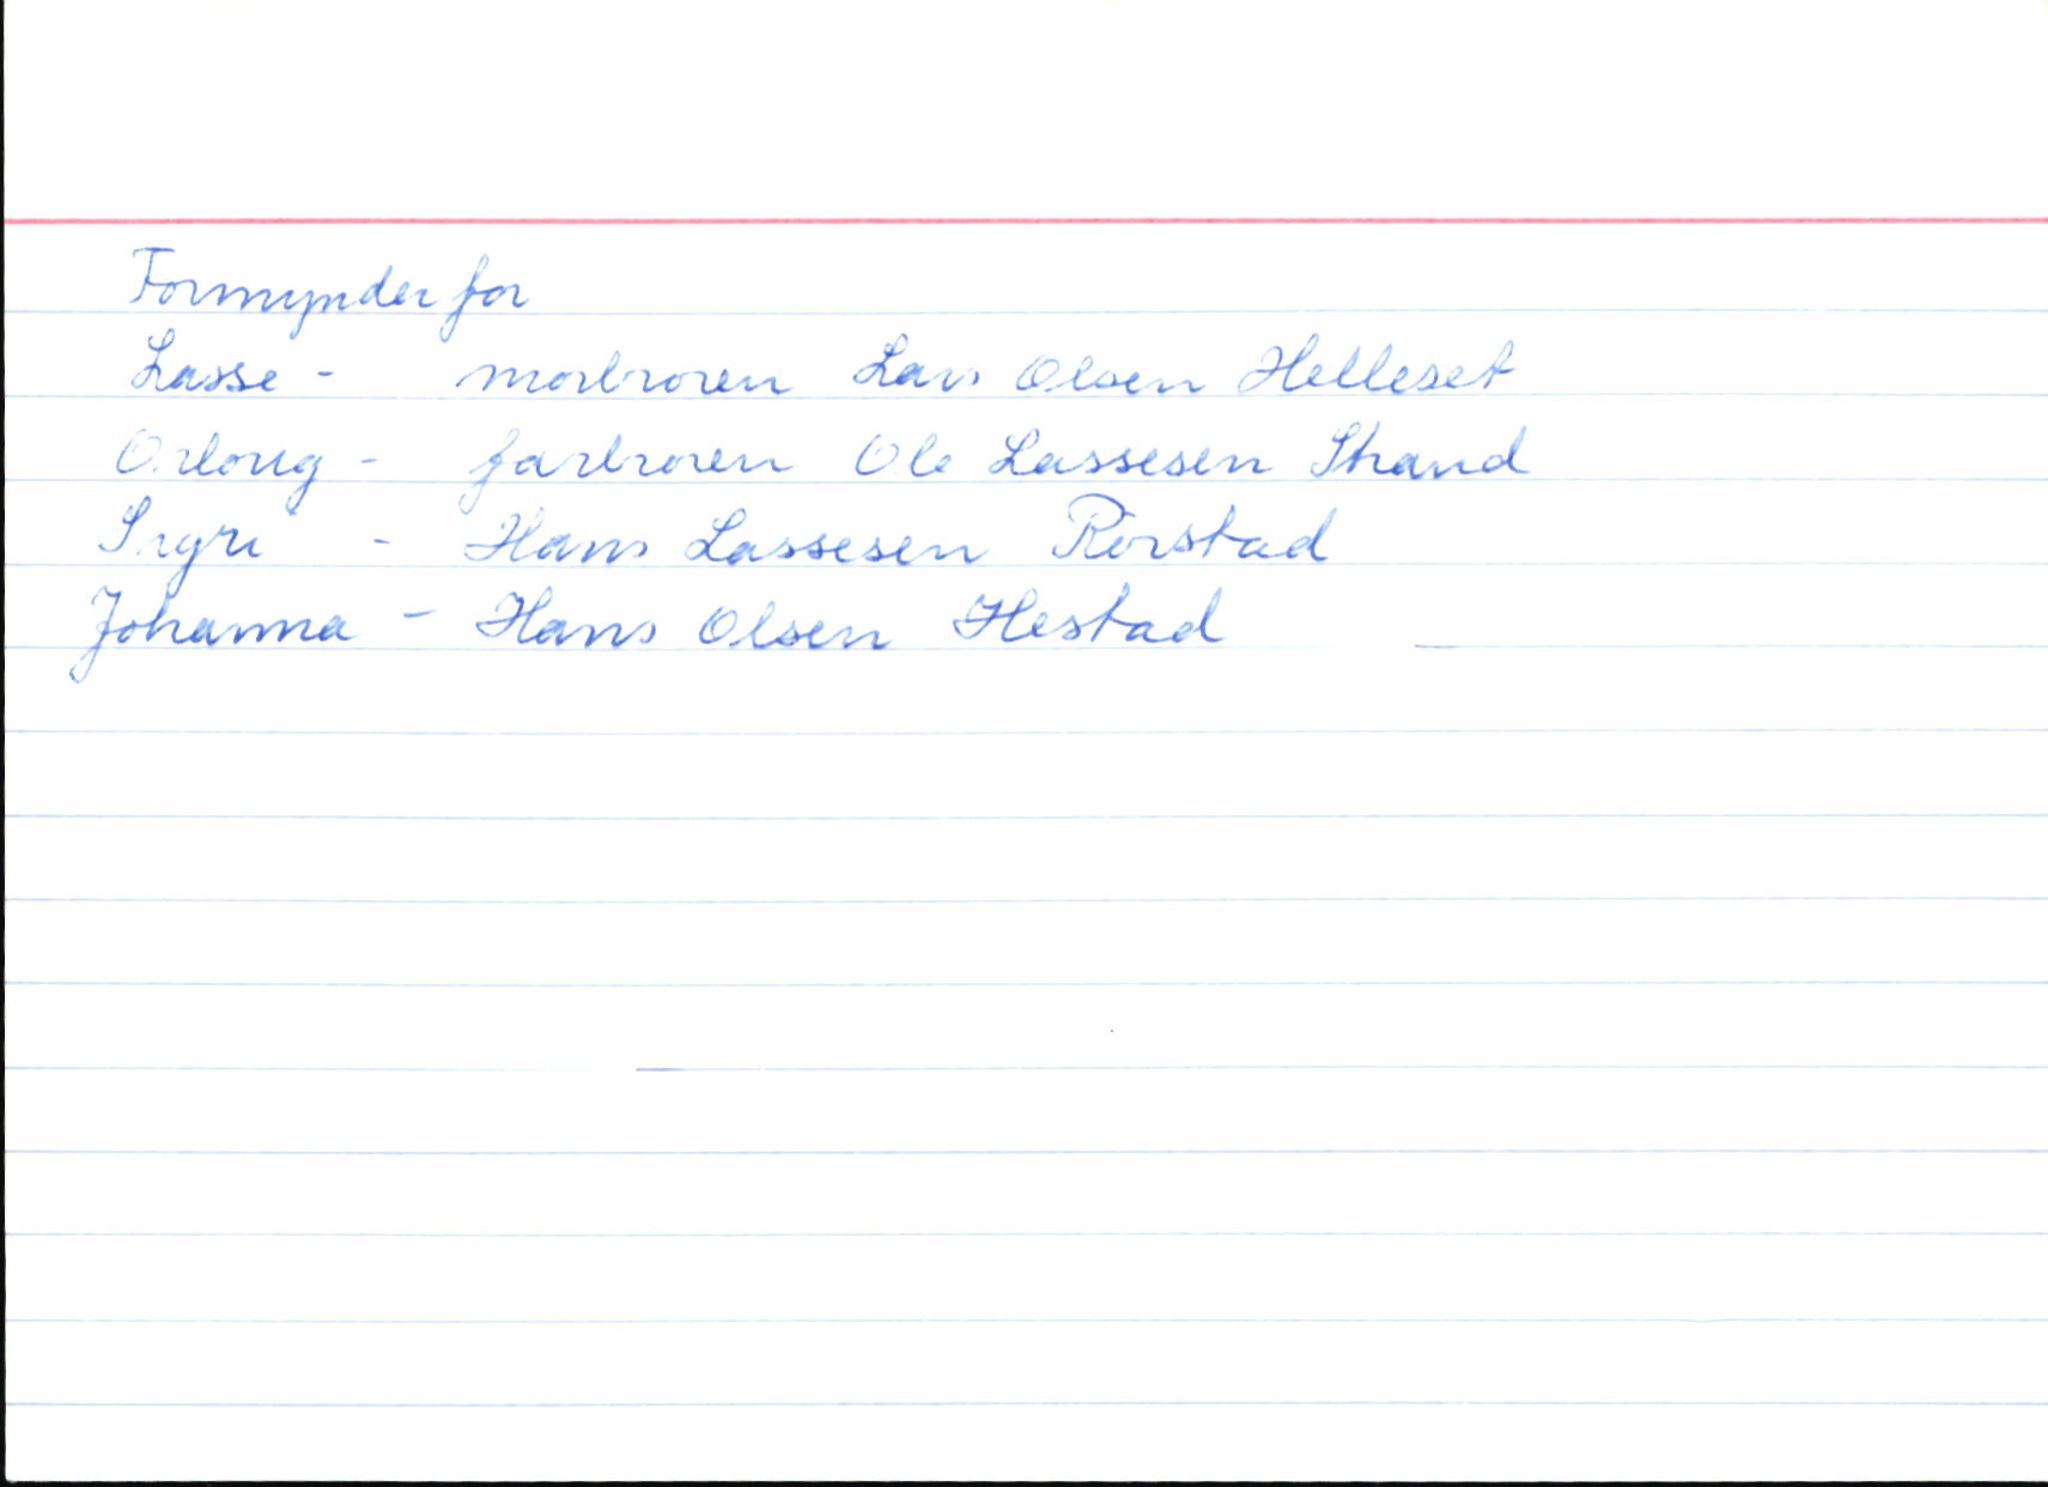 Formynder for
Lasse - morbroren Lars Olsen Helleset
Oxloug - farbroren Ole Lassesen Strand
Sigri - Hans Lassesen Rørstad
Johanna - Hans Olsen Hestad